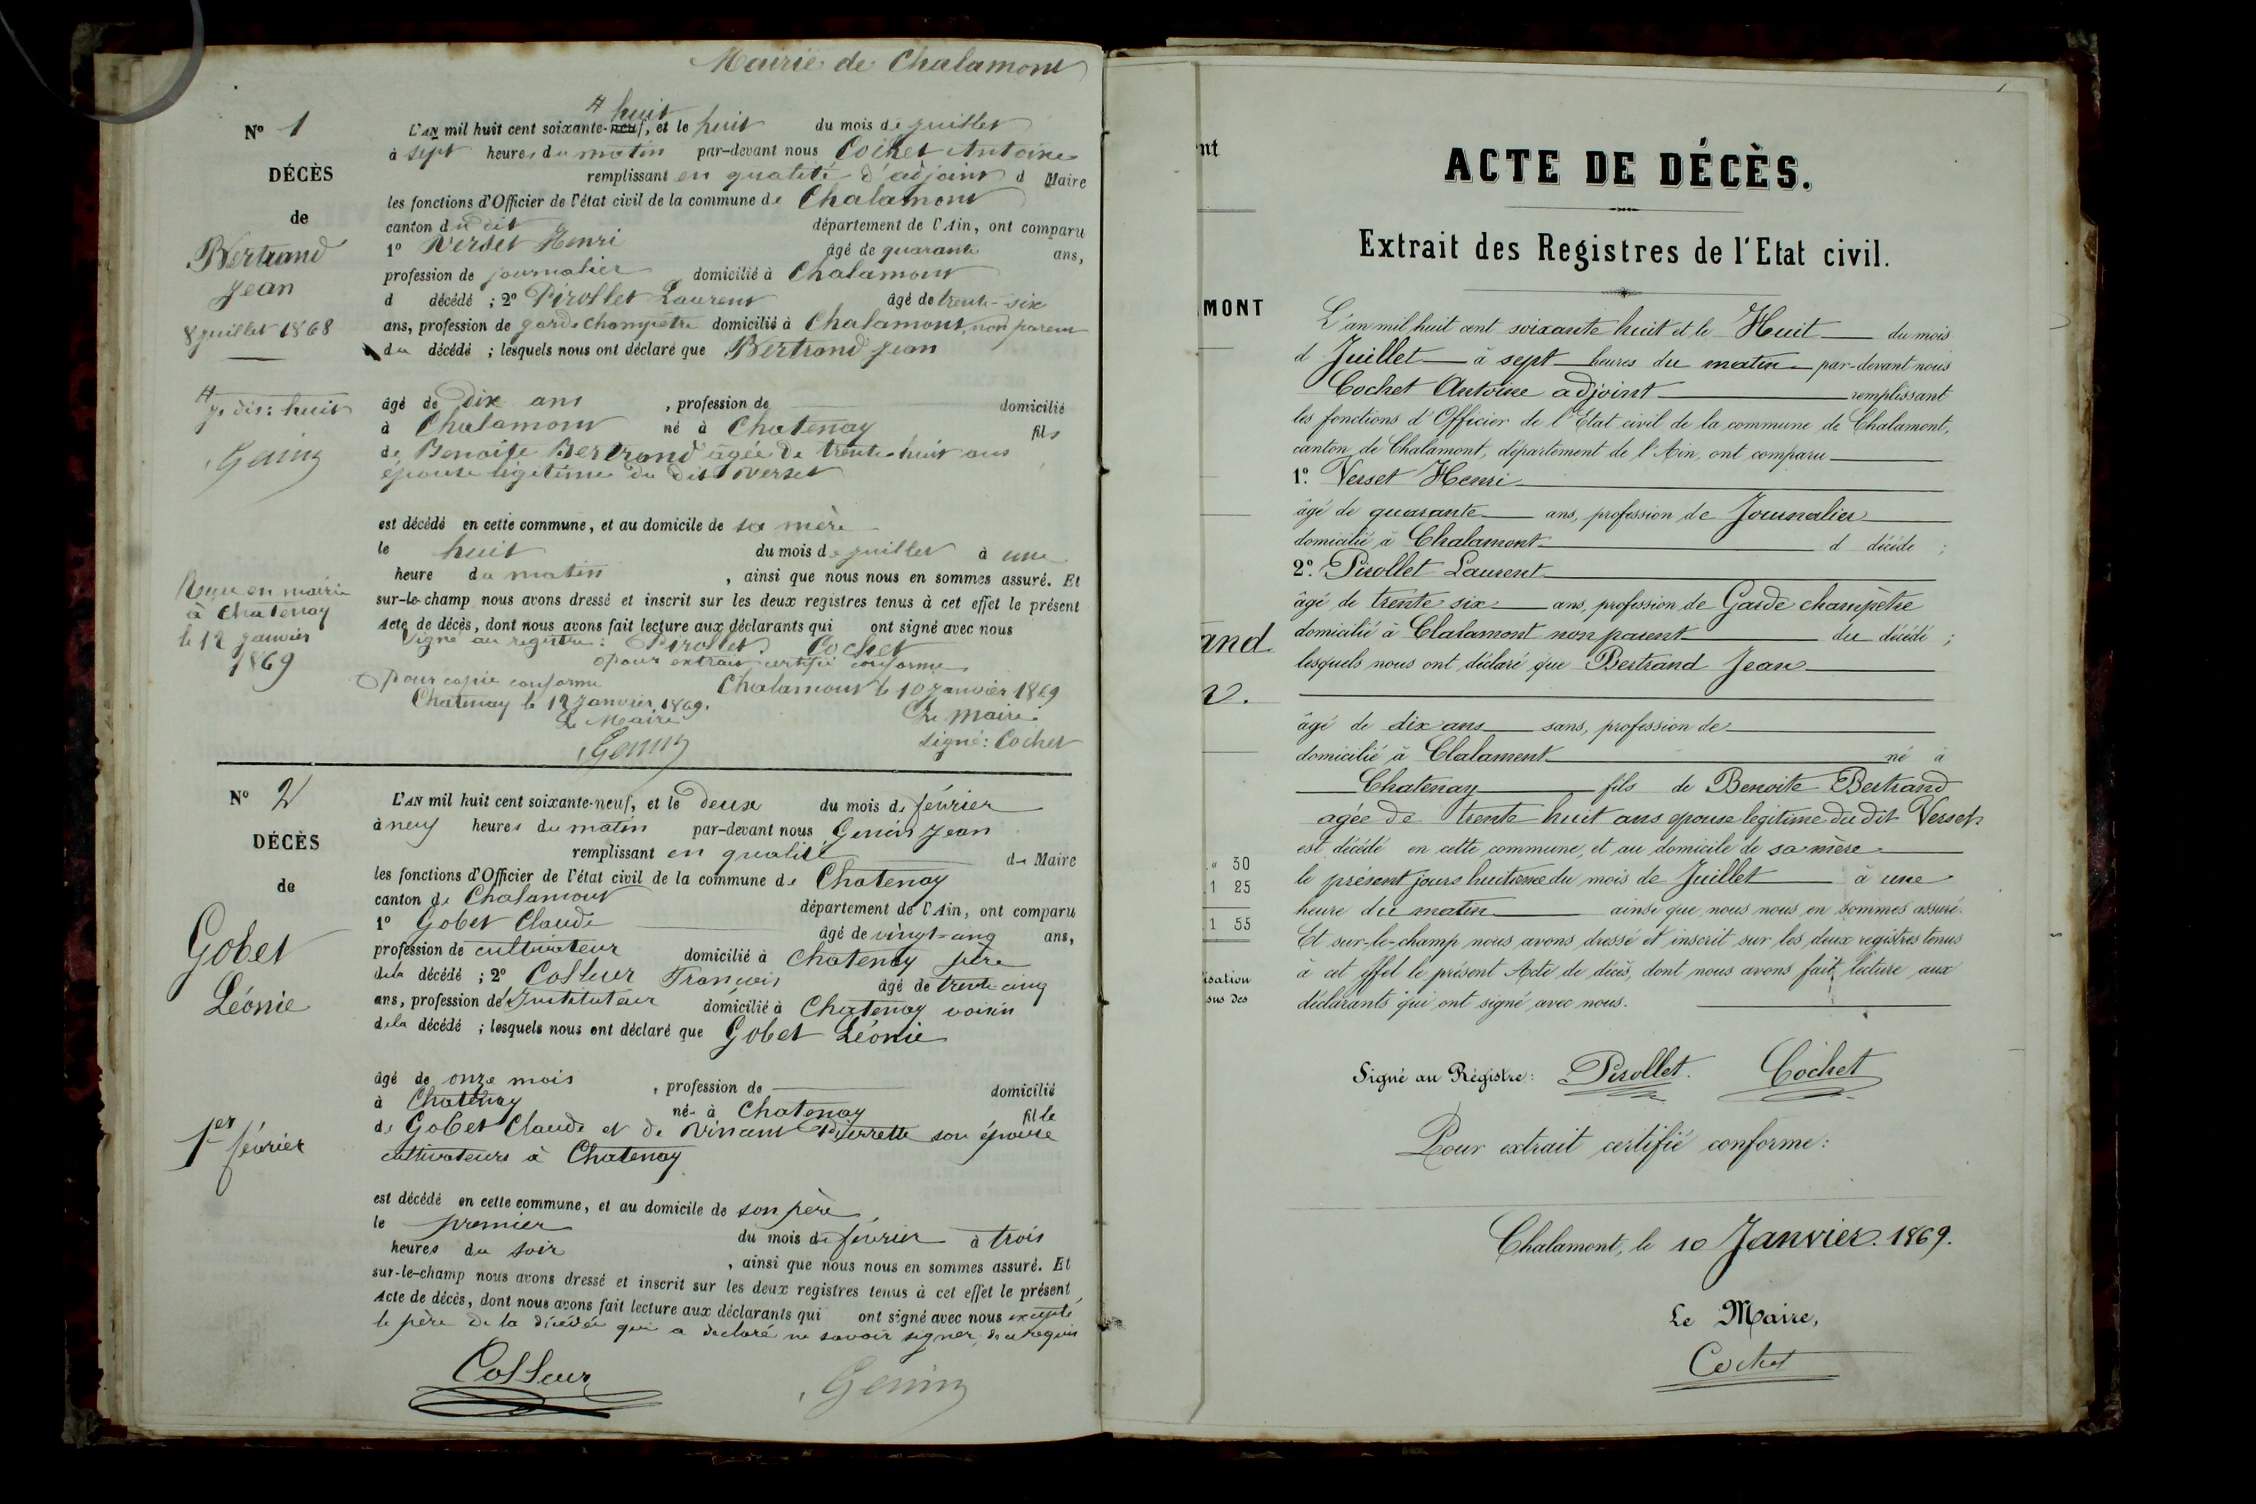 Mairie de Chalamont
N° 1
DÉCÈS
de
Bertrand
Jean
8 juillet 1868
# huit
L'AN mil huit cent soixante-neuf, et le huit du mois de juillet
à sept heures du matin par-devant nous Cochet Antoine
remplissant en qualité d'adjoint d Maire
les fonctions d'Officier de l'état civil de la commune de Chalamont
canton du dit département de l'Ain, ont comparu
1° Verset Henri âgé de quarante ans,
profession de journalier domicilié à Chalamont
d décédé ; 2° Pirollet Laurent âgé de trente-six
ans, profession de garde champêtre domicilié à Chalamont, non parent
du décédé ; lesquels nous ont déclaré que Bertrand Jean
# huit
Genin
âgé de Dix ans , profession de domicilié
à Chalamont né à Chatenay fils
de Benoite Bertrand âgée de trente-huit ans
épouse légitime du dit Verset
est décédé en cette commune, et au domicile de sa mère
le huit du mois de juillet à une
heure du matin , ainsi que nous nous en sommes assuré. Et
sur-le-champ nous avons dressé et inscrit sur les deux registres tenus à cet effet le présent
Acte de décès, dont nous avons fait lecture aux déclarants qui ont signé avec nous
Signé au registre: Pirollet. Cochet
pour extrait certifié conforme
Chalamont le 10 janvier 1869
Le Maire
signé: Cochet
pour copie conforme
Chatenay le 12 janvier 1869.
Le Maire
Genin
Reçu en mairie
à Chatenay
le 12 janvier
1869
N° 2
DÉCÈS
de
Gobet
Léonie
1er février
L'AN mil huit cent soixante-neuf, et le deux du mois de février
à neuf heures du matin par-devant nous Genin Jean
remplissant en qualité de Maire
les fonctions d'Officier de l'état civil de la commune de Chatenay
canton de Chalamont département de l'Ain, ont comparu
1° Gobet Claude âgé de vingt-cinq ans,
profession de cultivateur domicilié à Chatenay père
dela décédé ; 2° Colleur François âgé de trente cinq
ans, profession de Instituteur domicilié à Chatenay voisin
dela décédé ; lesquels nous ont déclaré que Gobet Léonie
âgé de onze mois , profession de domicilié
à Chatenay né à Chatenay fille
de Gobet Claude et de Vinant Pierrette son épouse
cultivateurs à Chatenay
est décédé en cette commune, et au domicile de son père
le premier du mois de février à trois
heures du soir , ainsi que nous nous en sommes assuré. Et
sur-le-champ nous avons dressé et inscrit sur les deux registres tenus à cet effet le présent
Acte de décès, dont nous avons fait lecture aux déclarants qui ont signé avec nous excepté
le père de la décédée qui a déclaré ne savoir signer, de ce requis
Colleur Genin
nt
MONT
and
30
1 25
1 55
isation
sus des
ACTE DE DÉCÈS.
Extrait des Registres de l'Etat civil.
L'an mil huit cent soixante huit et le Huit du mois
d Juillet à sept heures du matin par-devant nous
Cochet Antoine adjoint remplissant
les fonctions d'Officier de l'Etat civil de la commune de Chalamont,
canton de Chalamont, département de l'Ain, ont comparu
1°. Verset Henri
âgé de quarante ans, profession de Journalier
domicilié à Chalamont d décédé ;
2°. Pirollet Laurent
âgé de trente six ans, profession de Garde champêtre
domicilié à Chalamont non parent du décédé ;
lesquels nous ont déclaré que Bertrand Jean
âgé de dix ans sans, profession de
domicilié à Chalamont né à
Chatenay fils de Benoite Bertrand
agée de trente huit ans epouse légitime du dit Verset
est décédé en cette commune, et au domicile de sa mère
le présent jours huitieme du mois de Juillet à une
heure du matin ainsi que nous nous en sommes assuré.
Et sur-le-champ nous avons dressé et inscrit sur les deux registres tenus
à cet effet le présent Acte de décès, dont nous avons fait lecture aux
déclarants qui ont signé avec nous.
Signé au Régistre: Pirollet. Cochet
Pour extrait certifié conforme:
Chalamont, le 10 Janvier. 1869.
Le Maire,
Cochet